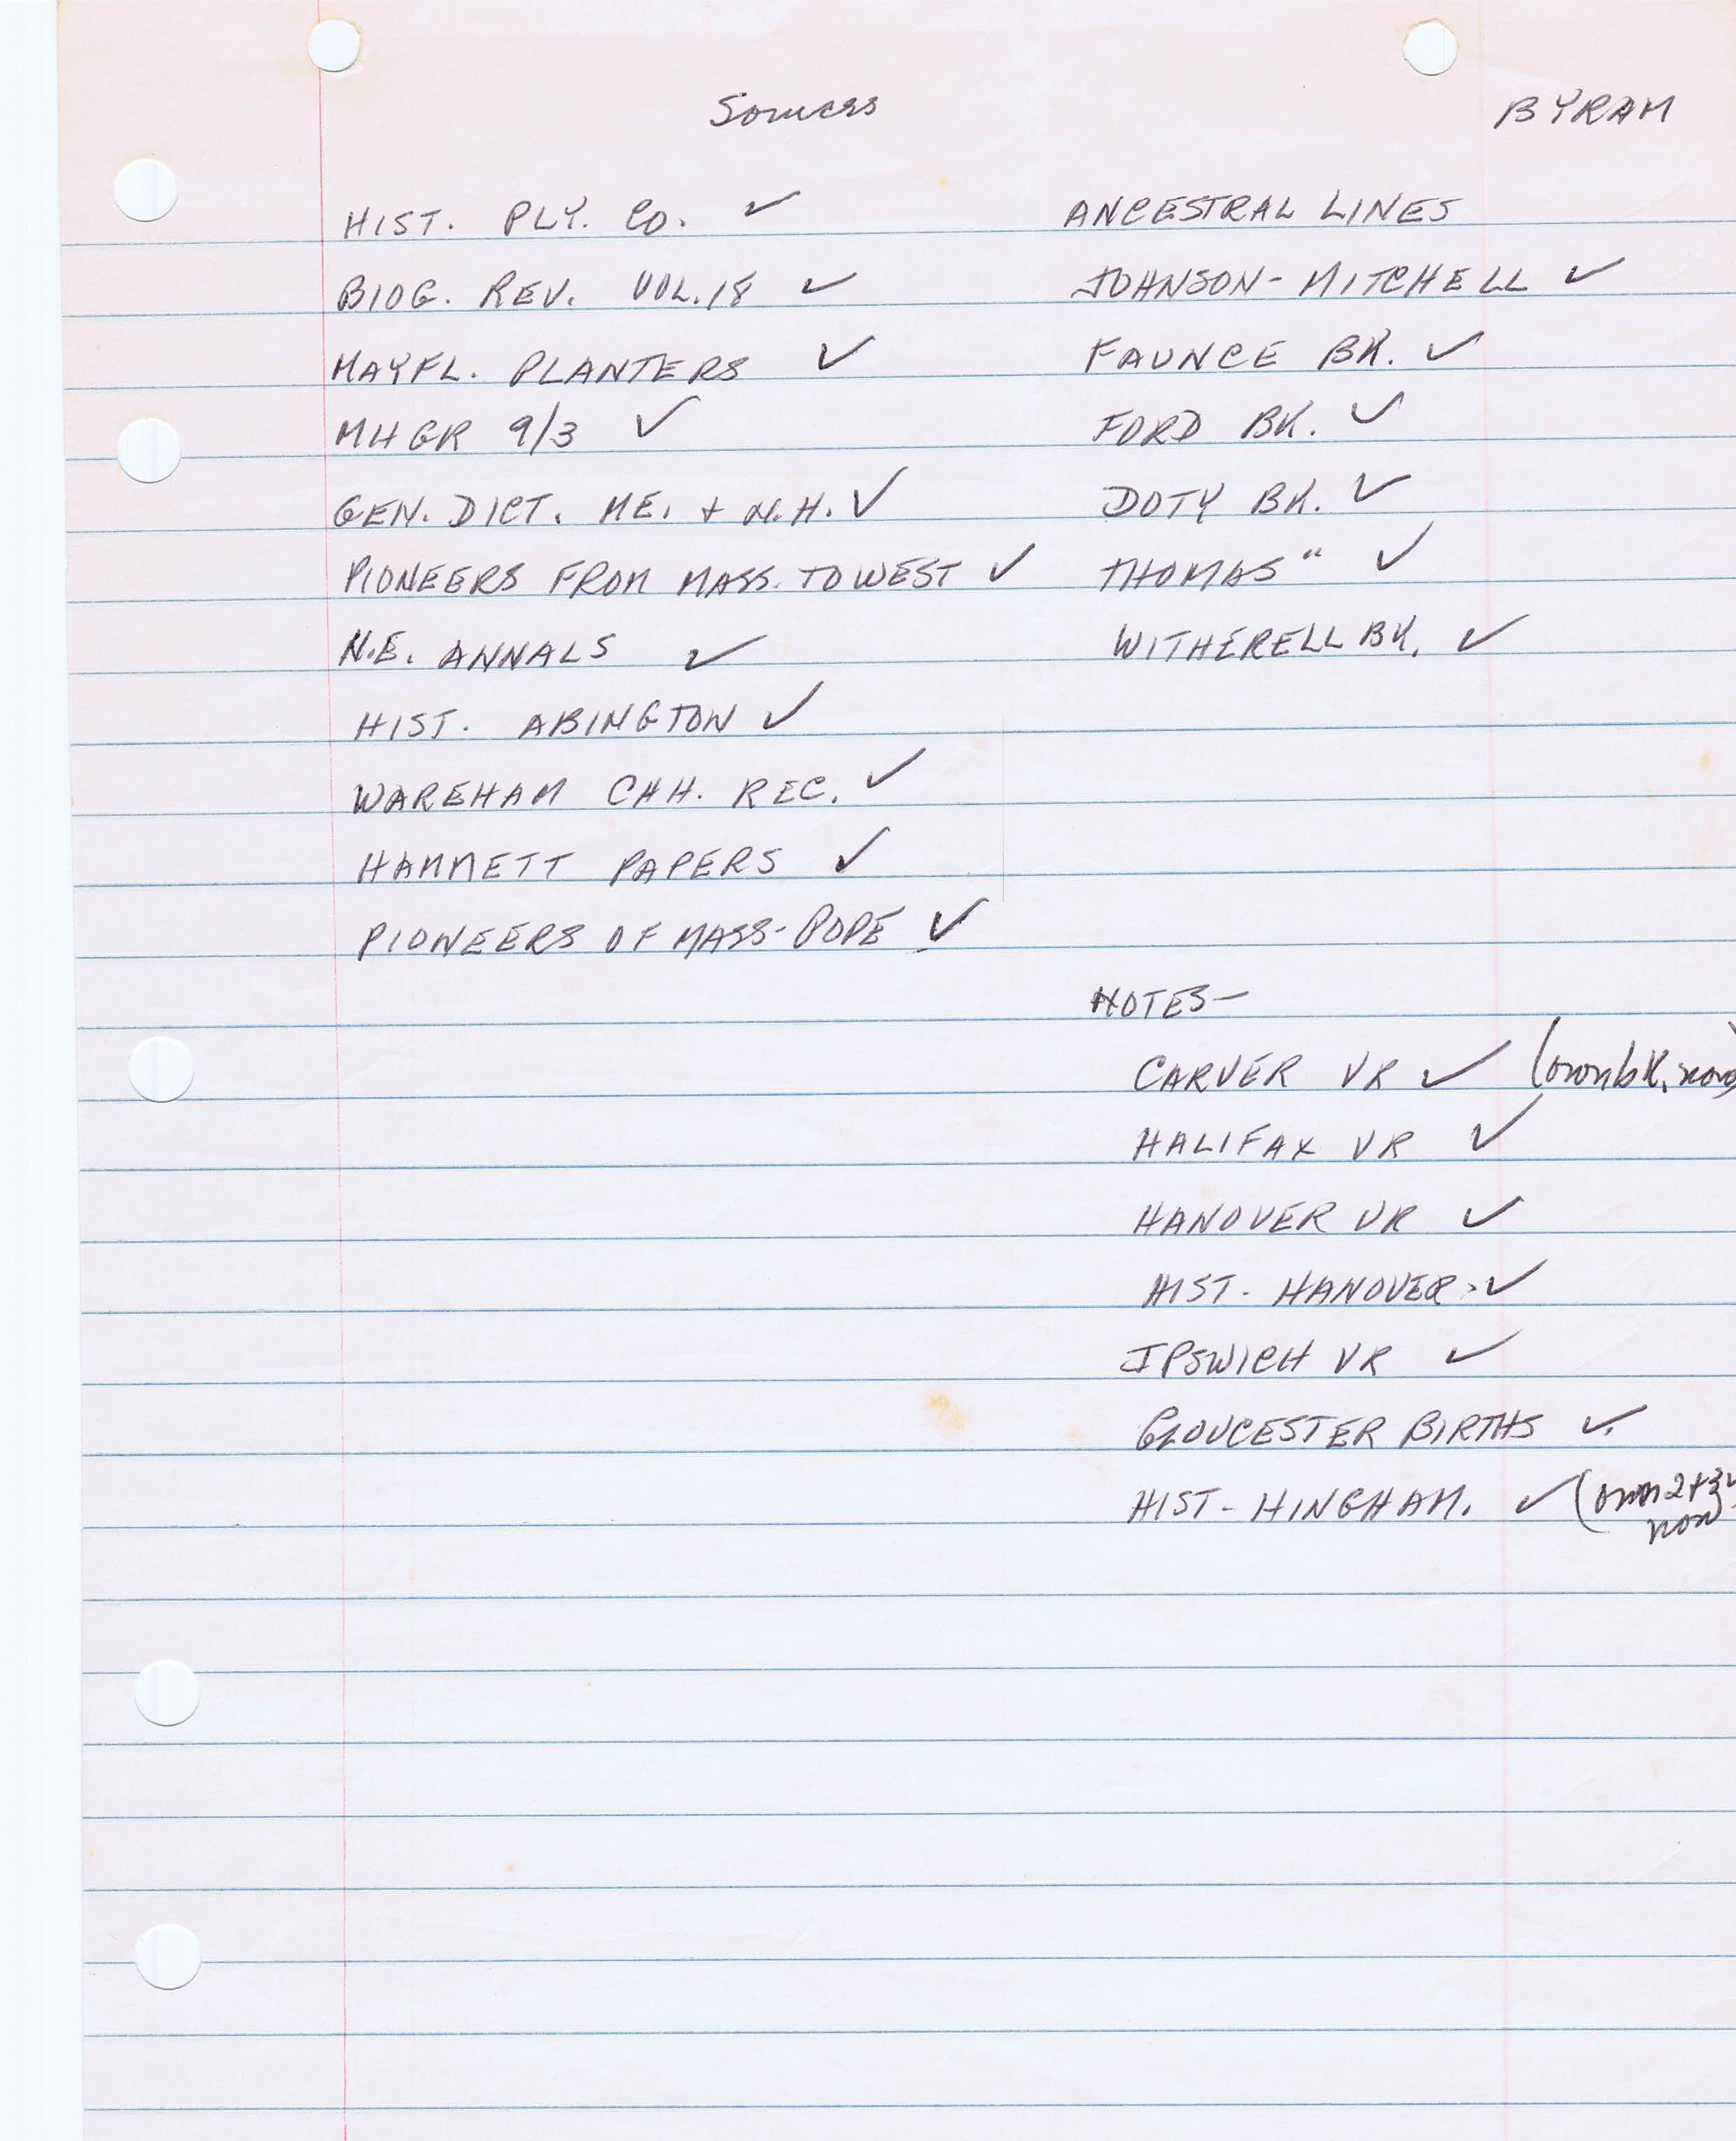 Sources
BYRAM
HIST. PLY. CO. ✓
BIOG. REV. VOL. 18 ✓
MAYFL. PLANTERS ✓
MHGR 9/3 ✓
GEN. DICT. ME. + N.H. ✓
PIONEERS FROM MASS. TO WEST ✓
N.E. ANNALS ✓
HIST. ABINGTON ✓
WAREHAM CHH. REC. ✓
HAMMETT PAPERS ✓
PIONEERS OF MASS-POPE ✓
ANCESTRAL LINES
JOHNSON-MITCHELL ✓
FAUNCE BK. ✓
FORD BK. ✓
DOTY BK. ✓
THOMAS " ✓
WITHERELL BK. ✓
NOTES-
CARVER VR ✓ (own bk. now)
HALIFAX VR ✓
HANOVER VR ✓
HIST. HANOVER ✓
IPSWICH VR ✓
GLOUCESTER BIRTHS ✓
HIST-HINGHAM. ✓ (own 2+3
now